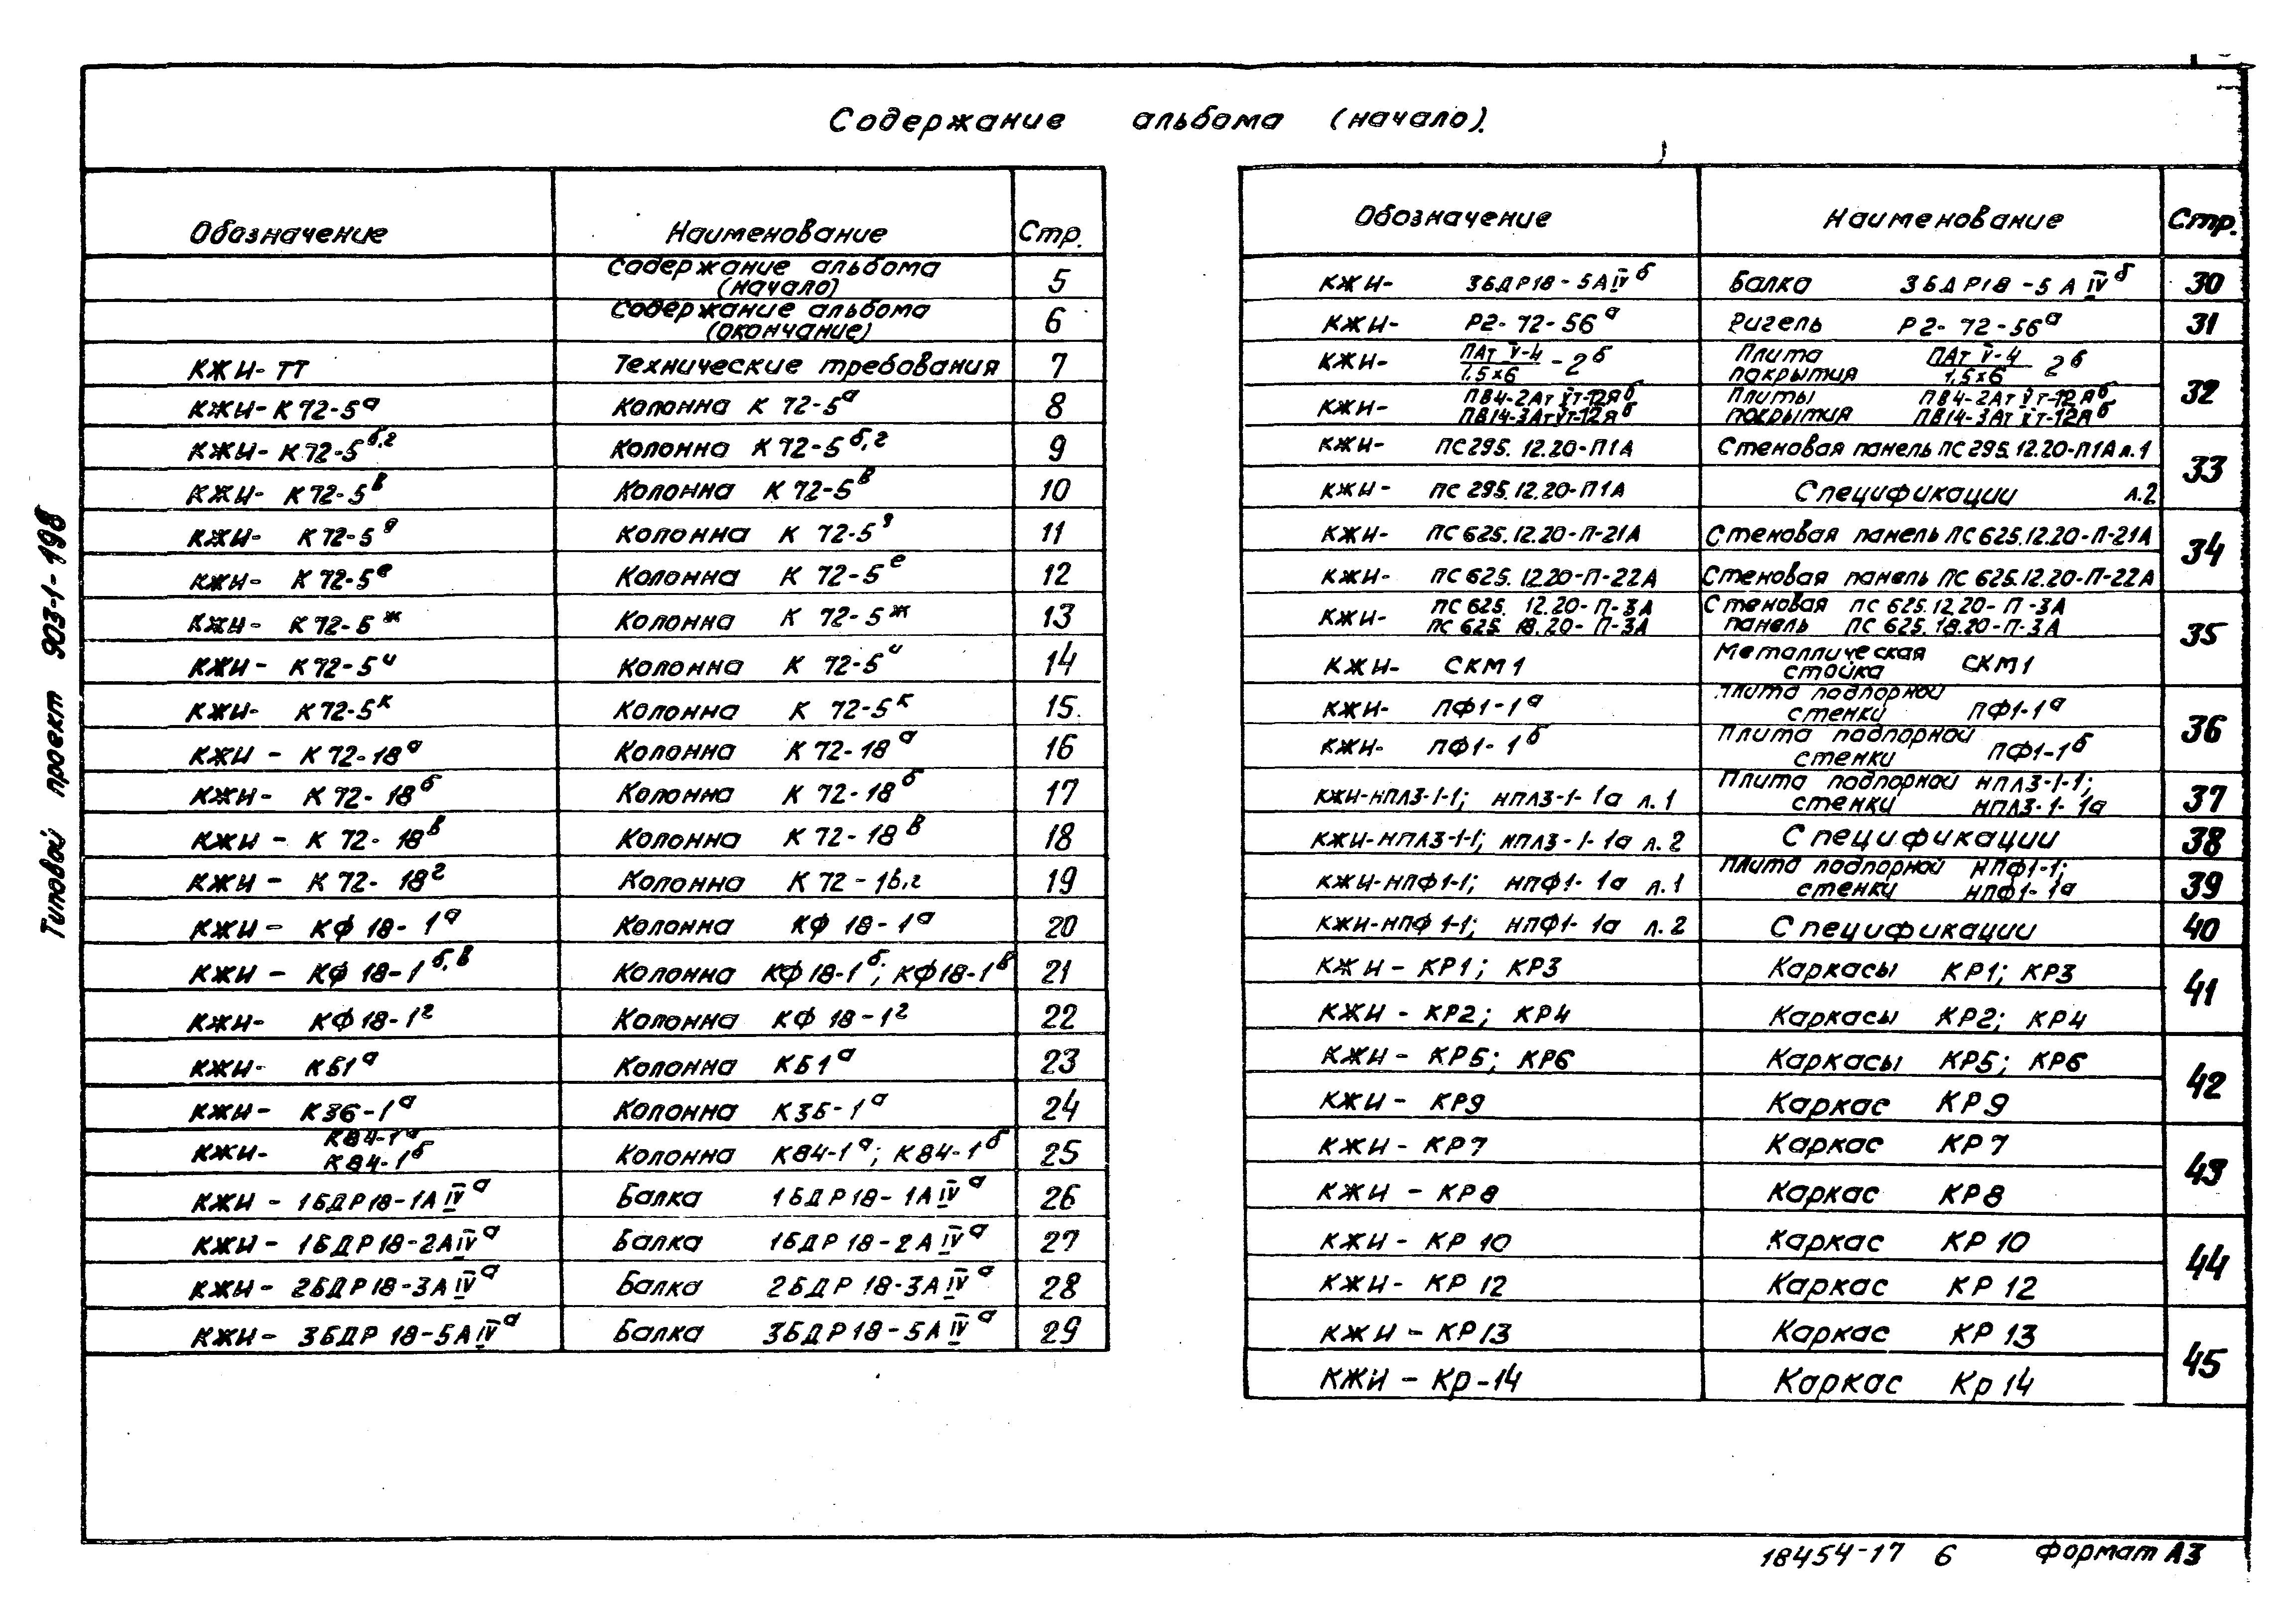 Содержание альбома (начало).
Обозначение Наименование Стр.
Содержание альбома
(начало) 5
Содержание альбома
(окончание) 6
КЖИ-ТТ Технические требования 7
КЖИ-К72-5а Колонна К 72-5а 8
КЖИ-К72-5б,г Колонна К 72-5б,г 9
КЖИ- К72-5в Колонна К 72-5в 10
КЖИ- К72-5д Колонна К 72-5д 11
КЖИ- К72-5е Колонна К 72-5е 12
КЖИ- К72-5ж Колонна К 72-5ж 13
КЖИ- К72-5и Колонна К 72-5и 14
КЖИ- К72-5к Колонна К 72-5к 15
КЖИ - К72-18а Колонна К72-18а 16
КЖИ- К72-18б Колонна К 72-18б 17
КЖИ - К 72-18в Колонна К72-18в 18
КЖИ - К72-18г Колонна К72-18,г 19
КЖИ - КФ18-1а Колонна КФ 18-1а 20
КЖИ - КФ18-1б,в Колонна КФ18-1б; КФ18-1в 21
КЖИ- КФ18-1г Колонна КФ 18-1г 22
КЖИ- КБ1а Колонна КБ1а 23
КЖИ- К36-1а Колонна К36-1а 24
КЖИ- К84-1а
К84-1б Колонна К84-1а; К84-1б 25
КЖИ - 1БДР18-1АIVа Балка 1БДР18-1АIVа 26
КЖИ - 1БДР18-2АIVа Балка 1БДР18-2АIVа 27
КЖИ - 2БДР18-3АIVа Балка 2БДР18-3АIVа 28
КЖИ - 3БДР18-5АIVа Балка 3БДР18-5АIVа 29
Обозначение Наименование Стр.
КЖИ- 3БДР18-5АIVб Балка 3БДР18-5АIVб 30
КЖИ- Р2-72-56а Ригель Р2-72-56а 31
КЖИ- ПАт V-4/1,5х6 - 2б Плита покрытия ПАт V-4/1,5х6 2б 32
КЖИ- ПВ4-2АтVт-12Яб Плиты ПВ4-2АтVт-12Яб
ПВ14-3АтVт-12Яб покрытия ПВ14-3АтVт-12Яб
КЖИ- ПС295.12.20-П1А Стеновая панель ПС295.12.20-П1А л.1 33
КЖИ- ПС 295.12.20-П1А Спецификации л.2
КЖИ- ПС625.12.20-П-21А Стеновая панель ПС625.12.20-П-21А 34
КЖИ- ПС625.12.20-П-22А Стеновая панель ПС 625.12.20-П-22А
КЖИ- ПС625. 12.20-П-3А Стеновая ПС 625.12.20-П-3А
ПС 625. 18.20-П-3А панель ПС 625.18.20-П-3А 35
КЖИ- СКМ1 Металлическая стойка СКМ1
КЖИ- ПФ1-1а Плита подпорной стенки ПФ1-1а 36
КЖИ- ПФ1-1б Плита подпорной стенки ПФ1-1б
КЖИ-НПЛ3-1-1; НПЛ3-1-1а л.1 Плита подпорной НПЛ3-1-1;
стенки НПЛ3-1-1а 37
КЖИ-НПЛ3-1-1; НПЛ3-1-1а л.2 Спецификации 38
КЖИ-НПФ1-1; НПФ1-1а л.1 Плита подпорной НПФ1-1;
стенки НПФ1-1а 39
КЖИ-НПФ1-1; НПФ1-1а л.2 Спецификации 40
КЖИ - КР1; КР3 Каркасы КР1; КР3 41
КЖИ - КР2; КР4 Каркасы КР2; КР4
КЖИ - КР5; КР6 Каркасы КР5; КР6 42
КЖИ - КР9 Каркас КР9
КЖИ - КР7 Каркас КР7 43
КЖИ - КР8 Каркас КР8
КЖИ - КР 10 Каркас КР 10 44
КЖИ - КР 12 Каркас КР 12
КЖИ - КР13 Каркас КР 13 45
КЖИ - Кр-14 Каркас Кр 14
Типовой проект 903-1-198
18454-17 6 Формат А3